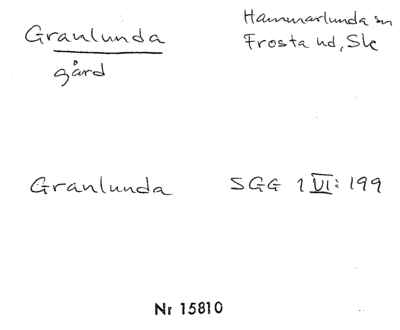 Granlunda
gård
Hammarlunda sn
Frosta hd, Sk
Granlunda SGG 1 VI: 199
Nr 15810